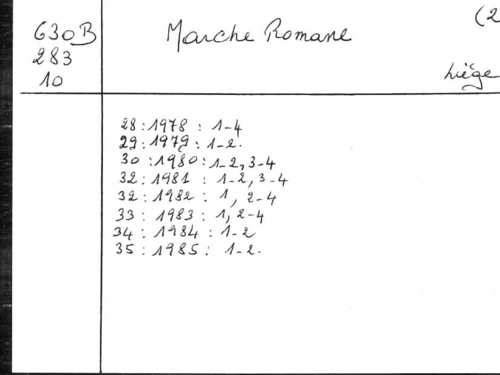 630B
283
10
Marche Romane
(2
Liége
28:1978 : 1-4
29:1979 : 1-2.
30:1980:1-2,3-4
32:1981 : 1-2,3-4
32:1982 : 1, 2-4
33:1983 : 1,2-4
34:1984 : 1-2
35:1985: 1-2.